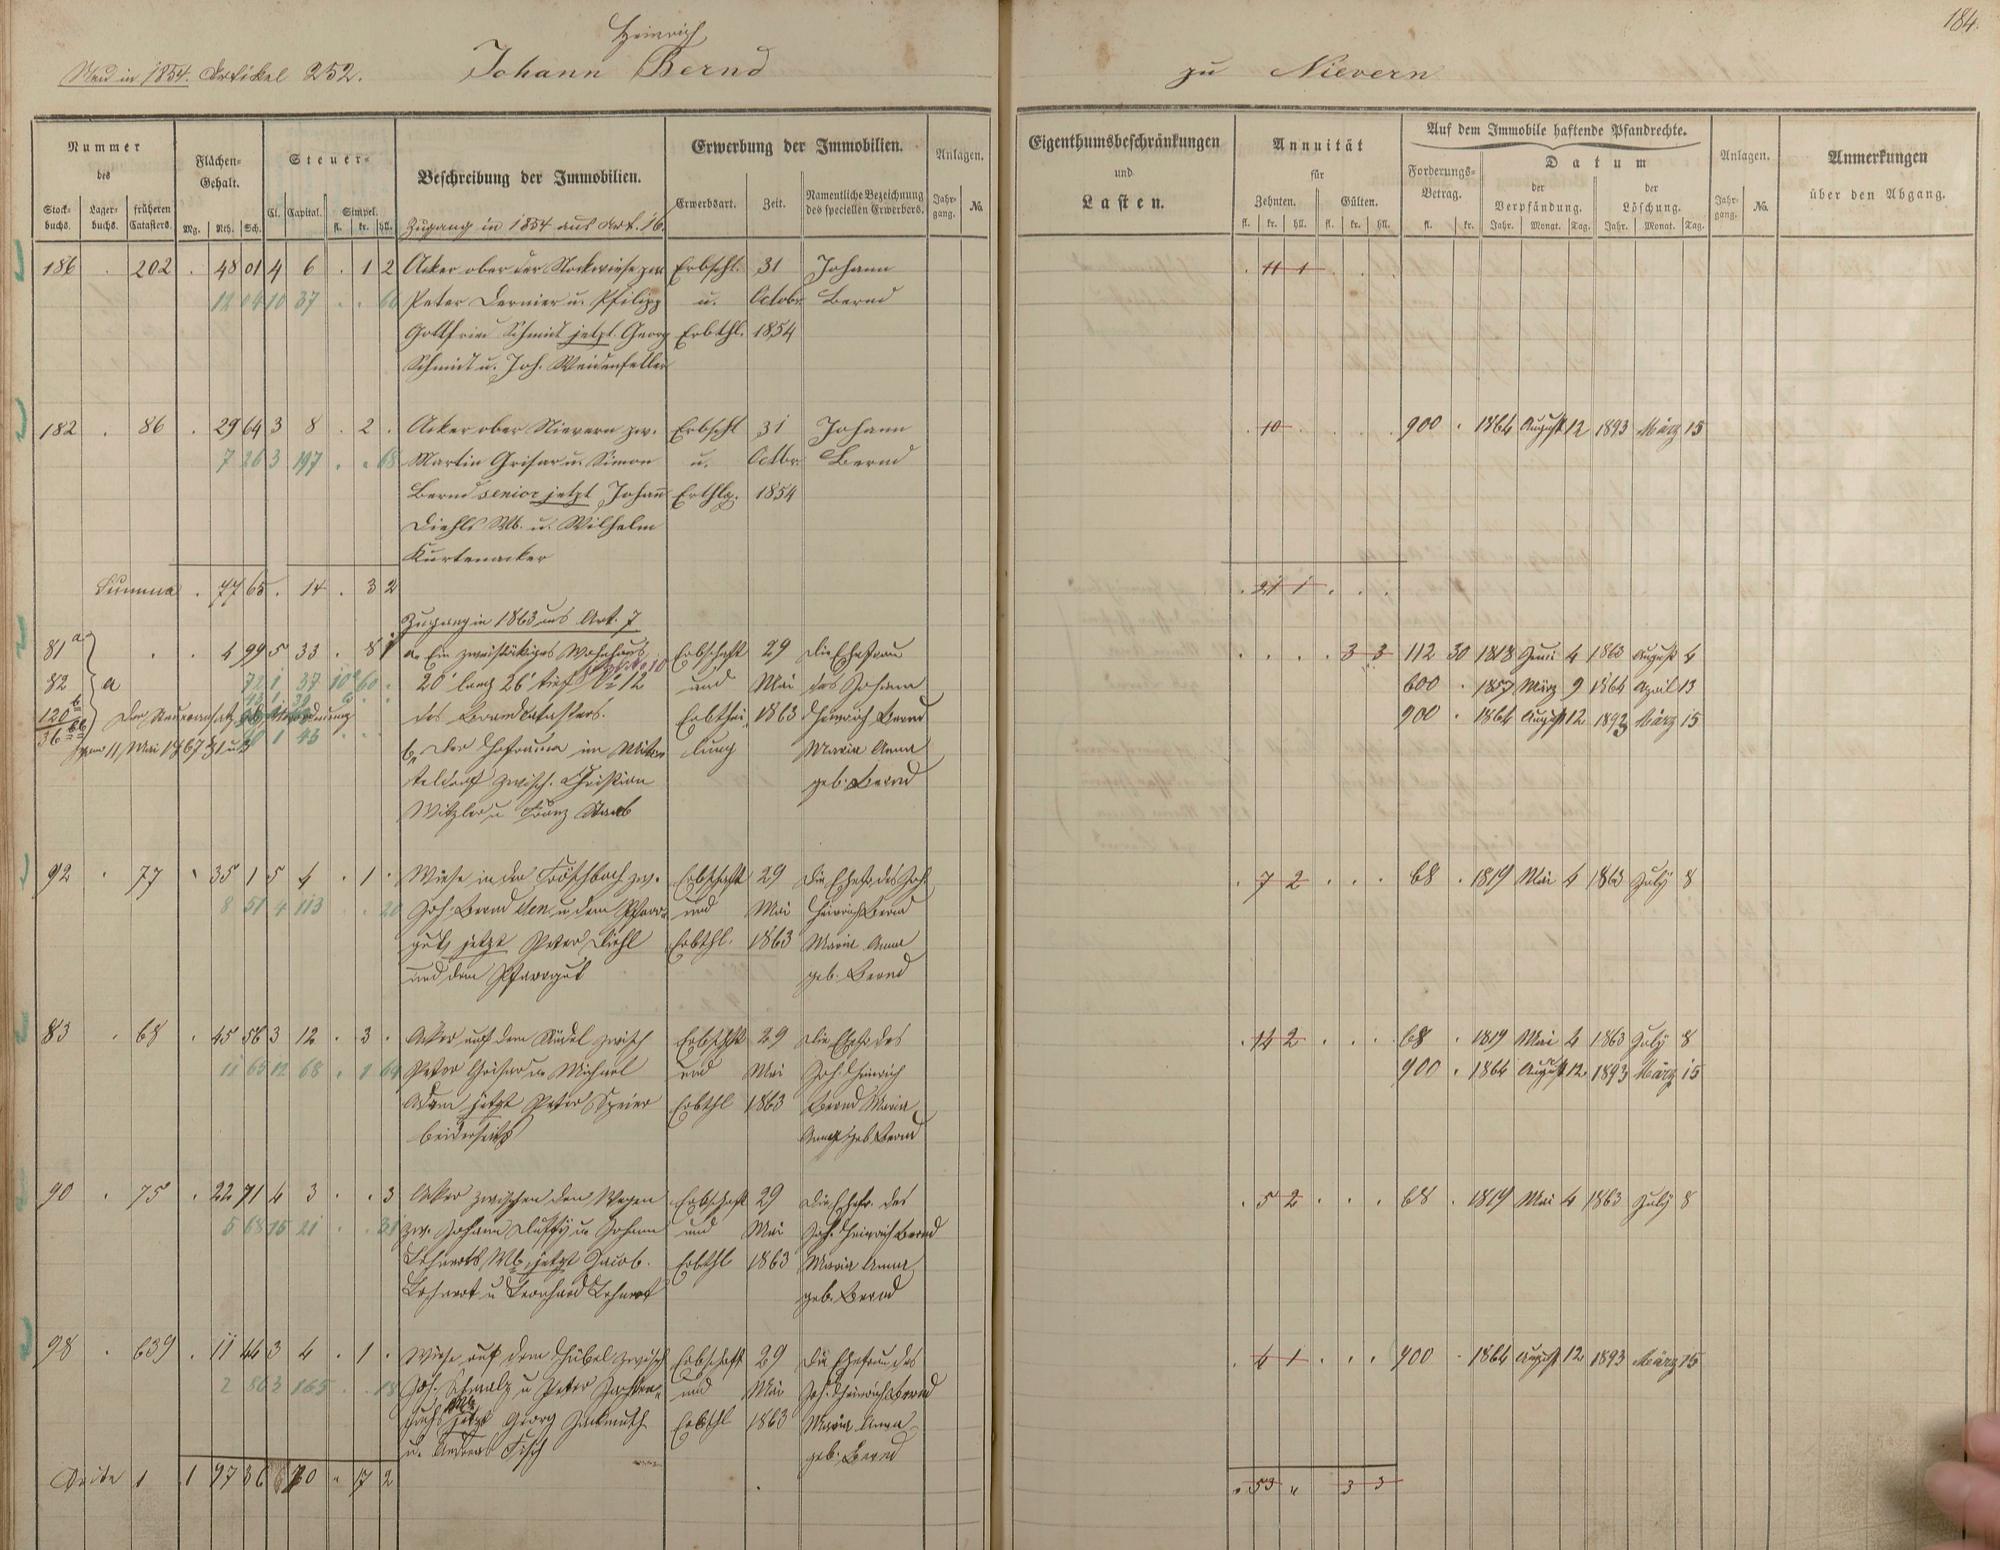 184.
Heinrich
Neu in 1854. Artikel 252. Johann Bernd zu Nievern
Nummer
des
Stock-
buchs.
Lager-
buchs.
früheren
Catasters.
Flächen-
Gehalt.
Mg. Rth. Sch.
Steuer-
Cl. Capital. Simpel.
fl. kr. hll.
Beschreibung der Immobilien.
Erwerbung der Immobilien.
Erwerbsart. Zeit. Namentliche Bezeichnung
des speciellen Erwerbers.
Anlagen.
Jahr-
gang. No.
Eigenthumsbeschränkungen
und
Lasten.
Annuität
für
Zehnten. Gülten.
fl. kr. hll. fl. kr. hll.
Auf dem Immobile haftende Pfandrechte.
Forderungs-
Betrag.
fl. kr.
Datum
der
Verpfändung.
Jahr. Monat. Tag.
der
Löschung.
Jahr. Monat. Tag.
Anlagen.
Jahr-
gang. No.
Anmerkungen
über den Abgang.
Zugang in 1854 aus Art. 16.
186 . 202 . 48 01 4 6 . 1 2 Acker ober der Stockwiese zw. Erbscht. 31 Johann . 11 1 . . .
12 04 10 37 . . 60 Peter Dernier u. Philipp u. Octobr Bernd
Gottfried Schmidt jetzt Georg Erbthl. 1854
Schmidt u. Joh. Weidenfeller
182 . 86 . 29 64 3 8 . 2 . Acker ober Nievern zw. Erbscht 31 Johann . 10 . . . . 900 . 1864 August 12 1893 März 15
7 26 3 197 . . 68 Martin Grisar u. Simon u. Octbr Bernd
Bernd senior jetzt Johann Erthlg. 1854
Diehls Wb. u. Wilhelm
Kurtenacker
Summa . 77 65 . 14 . 3 2 . 21 1 . . .
Zugang in 1863 aus Art. 7
81 a . . 4 99 5 33 . 8 1 a. Ein zweistökiges Wohnhaus Erbschaft 29 Die Ehefrau . . . . 3 3 112 30 1818 Juni 4 1863 August 4
82 a 72 1 37 10 60 . 20' lang 26' tief No 12 und Mai des Johann 600 . 1857 März 9 1864 April 13
120 b des Brandcatasters. Erbthei- 1863 Heinrich Bernd 900 . 1864 August 12 1893 März 15
36
vom 11. Mai 1867 § 1 u. 2 b. Der Hofraum im Mitten- lung Maria Anna
teldorf zwisch. Christian geb. Bernd
Witzler u Franz Staab
92 . 77 . 35 1 5 4 . 1 . Wiese in der Fröschbach zw. Erbschaft 29 Die Ehefr. des Joh. . 7 2 . . . 68 . 1819 Mai 4 1863 July 8
8 51 4 113 . . 20 Joh. Bernd sen u dem Pfarr- und Mai Heinrich Bernd
gut, jetzt Peter Diehl Erbthl. 1863 Maria Anna
und dem Pfarrgut geb. Bernd
83 . 68 . 45 56 3 12 . 3 . Acker auf dem zwisch Erbschft 29 Die Ehefr des . 14 2 . . . 68 . 1819 Mai 4 1863 July 8
11 65 12 68 . 1 64 Peter Grisar u Michael und Mai Joh. Heinrich 900 . 1864 August 12 1893 März 15
Adam jetzt Peter Speier Erbthl 1863 Bernd Maria
beiderseits Anna geb. Bernd
90 . 75 . 22 71 4 3 . . 3 Acker zwischen den Wegen Erbschaft 29 Die Ehefr. des . 5 2 . . . 68 . 1819 Mai 4 1863 July 8
5 68 15 21 . . 31 zw. Johann u Johann und Mai Joh. Heinrich Bernd
Lehnerts Wb. jetzt Jacob Erbthl 1863 Maria Anna
Lehnert u Leonhard Lehnert geb. Bernd
98 . 639 . 11 44 3 4 . 1 . Wiese auf dem Hübel zwisch Erbschaft 29 Die Ehefrau des . 4 1 . . . 900 . 1864 August 12 1893 März 15
2 86 3 165 . . 18 Joh. Schmalz u Peter und Mai Joh. Heinrich Bernd
jetzt Georg Erbthl 1863 Maria Anna
u. Andreas Fisch geb. Bernd
Seite 1 1 97 36 70 . 17 2 . 53 . 3 3